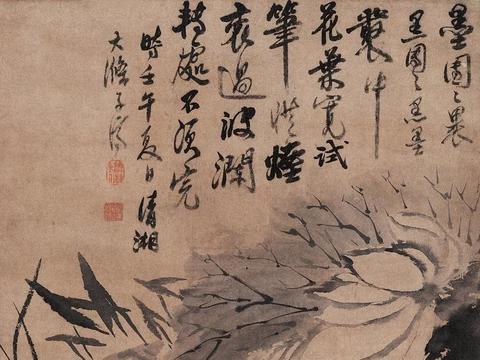 墨團々裏
黑團々黑墨
叢中
花葉寬試
筆從煙
裏過波瀾
轉處不須完
時壬午夏日清湘
大滌子濟